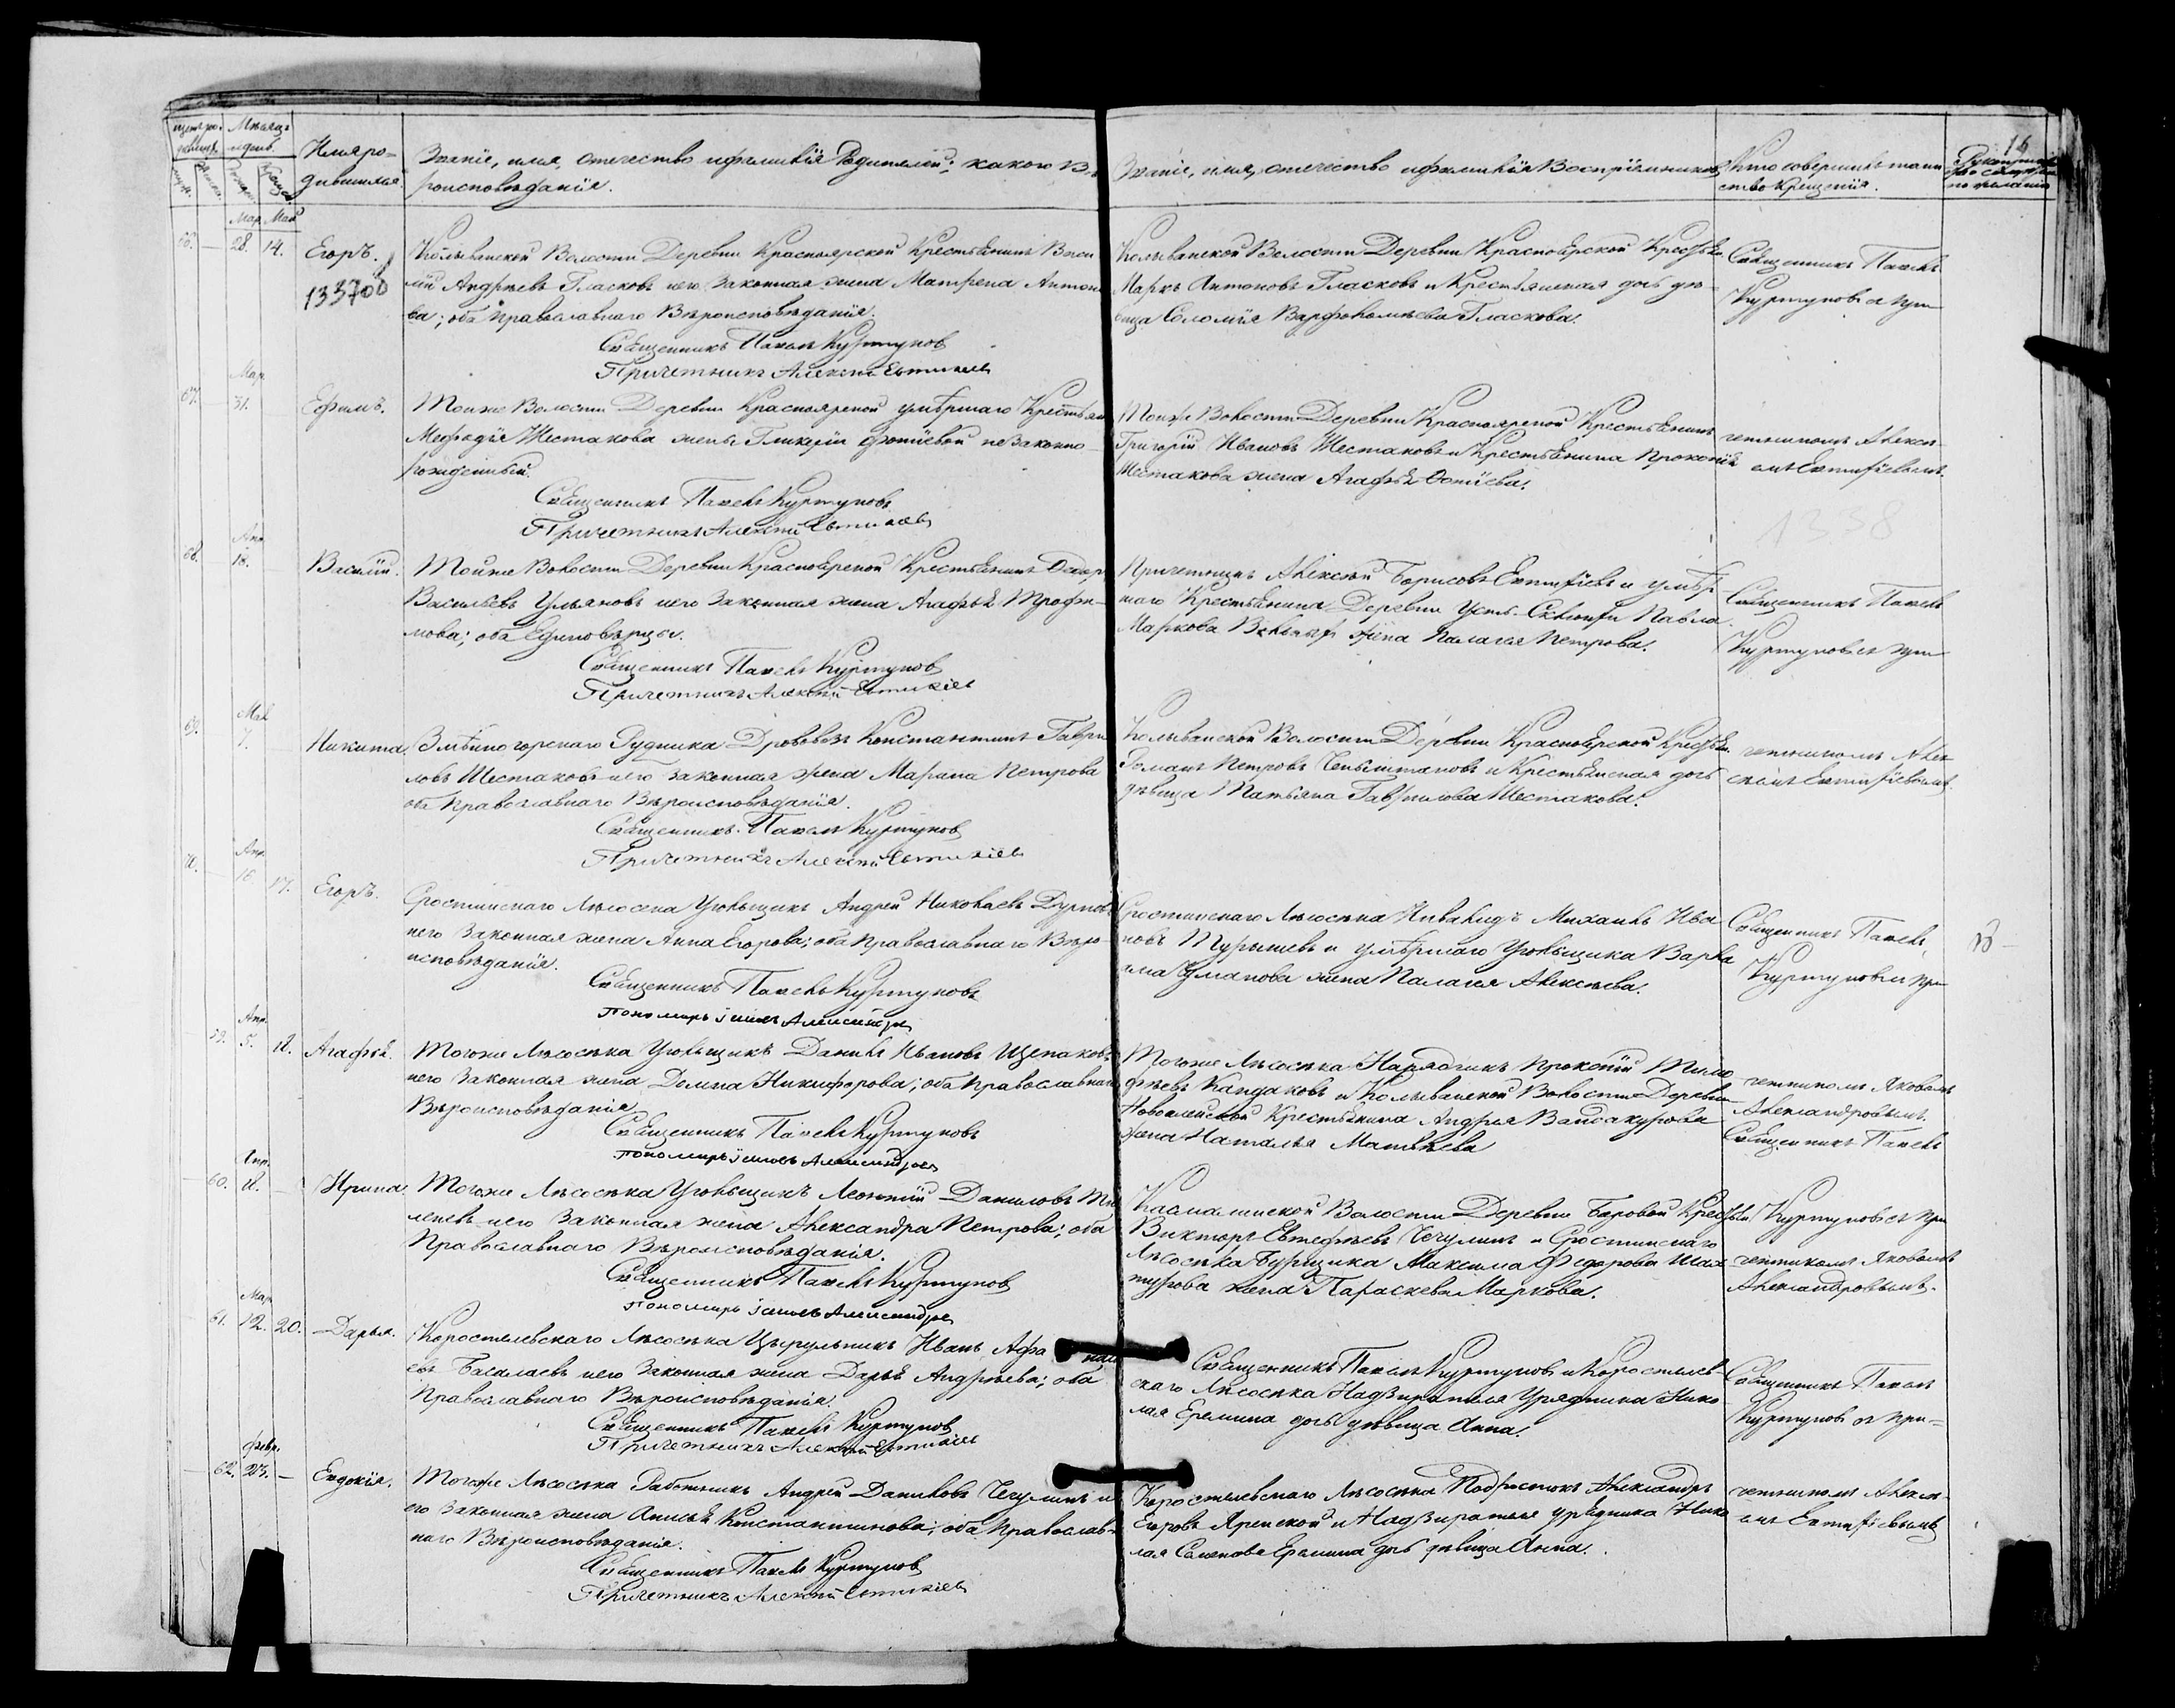 Мѣсяцъ
Имя ро-
дившихся.
Званіе, имя, отечество и фамилія Родителей, какого Вѣ-
роисповѣданія.
Званіе, имя, отечество и фамилія Воспріемниковъ
Кто совершилъ таин
ство крещенія.
Мар. Май
66. — 28. 14.
Егоръ.
Колыванской Волости Деревни Красноярской Крестьянинъ Васи
лій Андреевъ Гласковъ и его законная жена Матрена Антоно
ва; оба православнаго Вѣроисповѣданія.
Священникъ Павелъ Куртуковъ
Причетникъ Алексѣй Евтифіевъ
Колыванской Волости Деревни Красноярской Крестья
Марко Антоновъ Гласковъ и Крестьянская дочь дѣ-
вица Соломія Варфоломѣева Гласкова.
Священникъ Павелъ
Куртуковъ съ при
Мар.
67. 31.
Ефимъ.
Тойже Волости Деревни Красноярской умѣршаго Крестьян
Мефодія Шестакова жены Гликеріи Фотіевой незаконно-
рожденный.
Священникъ Павелъ Куртуковъ
Причетникъ Алексѣй Евтифіевъ
Тойже Волости Деревни Красноярской Крестьянинъ
Григорій Ивановъ Шестаковъ и Крестьянина Прокопія
Шестакова жена Агафья Фотіева.
четникомъ Алексѣ-
емъ Евтифіевымъ.
1338
Апр.
68. 18.
Василій.
Тойже Волости Деревни Красноярской Крестьянинъ
Васильевъ Ульяновъ и его законная жена Агафья Трофи-
мова; оба Единовѣрцы.
Священникъ Павелъ Куртуковъ
Причетникъ Алексѣй Евтифіевъ
Причетникъ Алексѣй Борисовъ Евтифіевъ и умѣр-
шаго Крестьянина Деревни Усть- Павла
Маркова жена Палагея Петрова.
Священникъ Павелъ
Куртуковъ съ при
Май
69. 7.
Никита.
Змѣиногорскаго Рудника Дрововозъ Константинъ Гаври
ловъ Шестаковъ и его законная жена Марина Петрова
оба православнаго Вѣроисповѣданія.
Священникъ Павелъ Куртуковъ
Причетникъ Алексѣй Евтифіевъ
Колыванской Волости Деревни Красноярской Крестьян.
Романъ Петровъ и Крестьянская дочь
дѣвица Татьяна Гаврилова Шестакова.
четникомъ Алек
сѣемъ Евтифіевымъ
Апр.
16. 17.
Егоръ.
Сростинскаго Лѣсосѣка Угольщикъ Андрей Николаевъ
и его законная жена Анна Егорова; оба православнаго Вѣро-
исповѣданія.
Священникъ Павелъ Куртуковъ
Пономарь Іаковъ Александровъ
Сростинскаго Лѣсосѣка Инвалидъ Михаилъ Ива
новъ Турышевъ и умѣршаго Угольщика Варла
ама Чуманова жена Палагея Алексѣева.
Священникъ Павелъ
Куртуковъ съ при
Апр.
59. 5. 18.
Агафья.
Тогоже Лѣсосѣка Угольщикъ Данилъ Ивановъ Щепаковъ
и его законная жена Домна Никифорова; оба православнаго
Вѣроисповѣданія
Священникъ Павелъ Куртуковъ
Пономарь Іаковъ Александровъ
Тогоже Лѣсосѣка Нарядчикъ Прокопій Тимо
фѣевъ Кандаковъ и Колыванской Волости Деревни
Новоалейской Крестьянина Андрея Вайдакурова
жена Наталья Матвѣева
четникомъ Яковомъ
Александровымъ.
Священникъ Павелъ
Апр.
60. 18. —
Ирина.
Тогоже Лѣсосѣка Угольщикъ Леонтій Даниловъ
и его законная жена Александра Петрова; оба
Православнаго Вѣроисповѣданія.
Священникъ Павелъ Куртуковъ
Пономарь Іаковъ Александровъ
Касмалинской Волости Деревни Боровой Крестьян
Викторъ Евстефѣевъ Чечулинъ и Сростинскаго
Лѣсосѣка Максима Федорова
жена Параскева Маркова.
Куртуковъ съ при
четникомъ Яковомъ
Александровымъ.
Мар.
61. 12. 20.
Дарья.
Коростелевскаго Лѣсосѣка Цырульникъ Иванъ Афанась
евъ Басалаевъ и его законная жена Дарья Андреева; оба
Православнаго Вѣроисповѣданія.
Священникъ Павелъ Куртуковъ
Причетникъ Алексѣй Евтифіевъ
Священникъ Павелъ Куртуковъ и Коростелев-
скаго Лѣсосѣка Надзирателя Урядника Нико
лая Еремина дочь дѣвица Анна.
Священникъ Павелъ
Куртуковъ съ при-
Февр.
62. 23. —
Евдокія.
Тогоже Лѣсосѣка Работникъ Андрей Даниловъ Чечулинъ и
его законная жена Анисья Константинова; оба православ-
наго Вѣроисповѣданія.
Священникъ Павелъ Куртуковъ
Причетникъ Алексѣй Евтифіевъ
Коростелевскаго Лѣсосѣка Подростокъ Александръ
Егоровъ Яренской и Надзирателя урядника Нико
лая Семенова Еремина дочь дѣвица Анна.
четникомъ Алексѣ-
емъ Евтифіевымъ